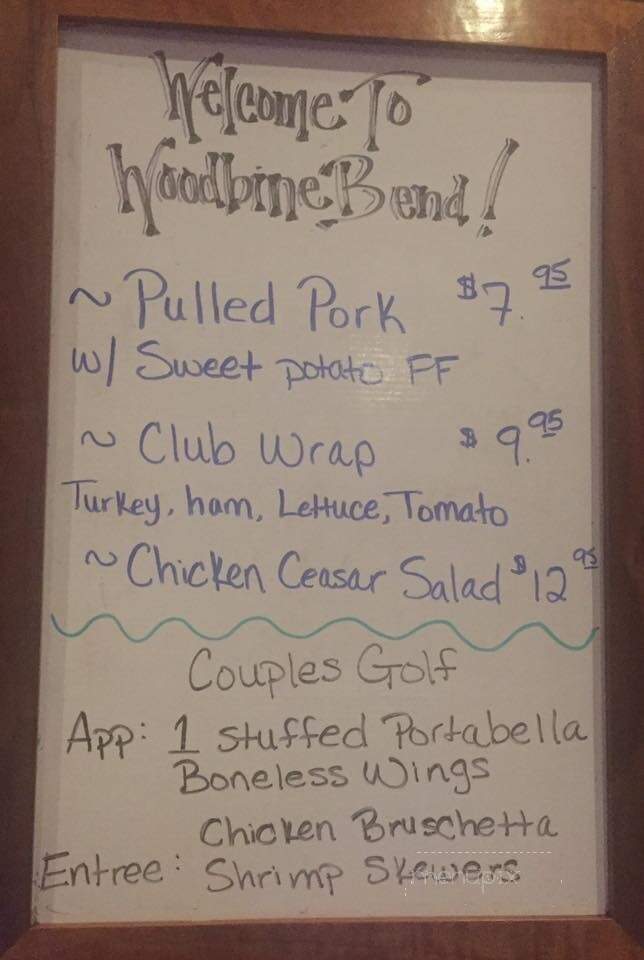 Welcome To
Woodbine Bend!
~ Pulled Pork $7.95
w/ Sweet potato FF
~ Club Wrap $9.95
Turkey, ham, Lettuce, Tomato
~ Chicken Ceasar Salad $12 95
Couples Golf
App: 1 Stuffed Portabella
Boneless Wings
Chicken Bruschetta
Entree: Shrimp Skewers
menupix